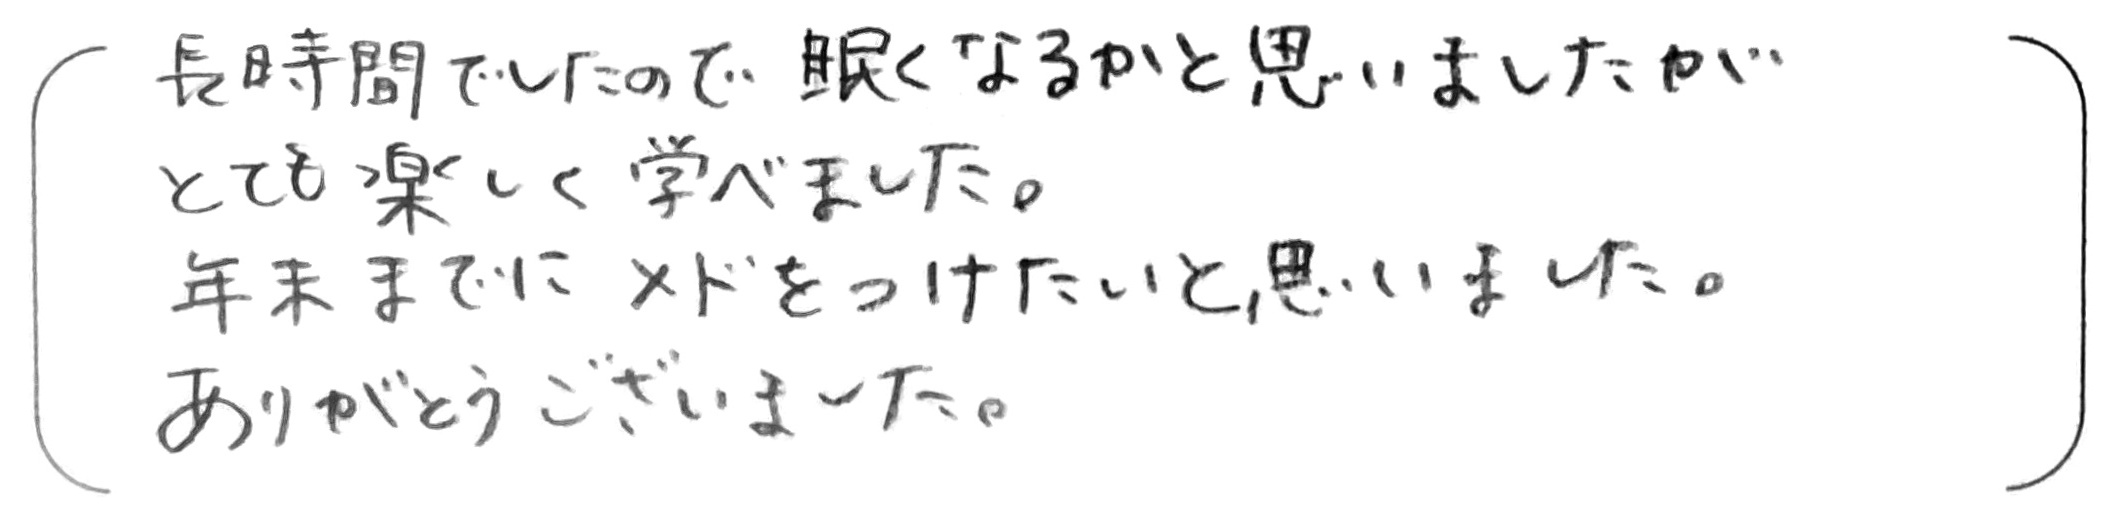 長時間でしたので眠くなるかと思いましたが
とても楽しく学べました。
年末までにメドをつけたいと思いました。
ありがとうございました。